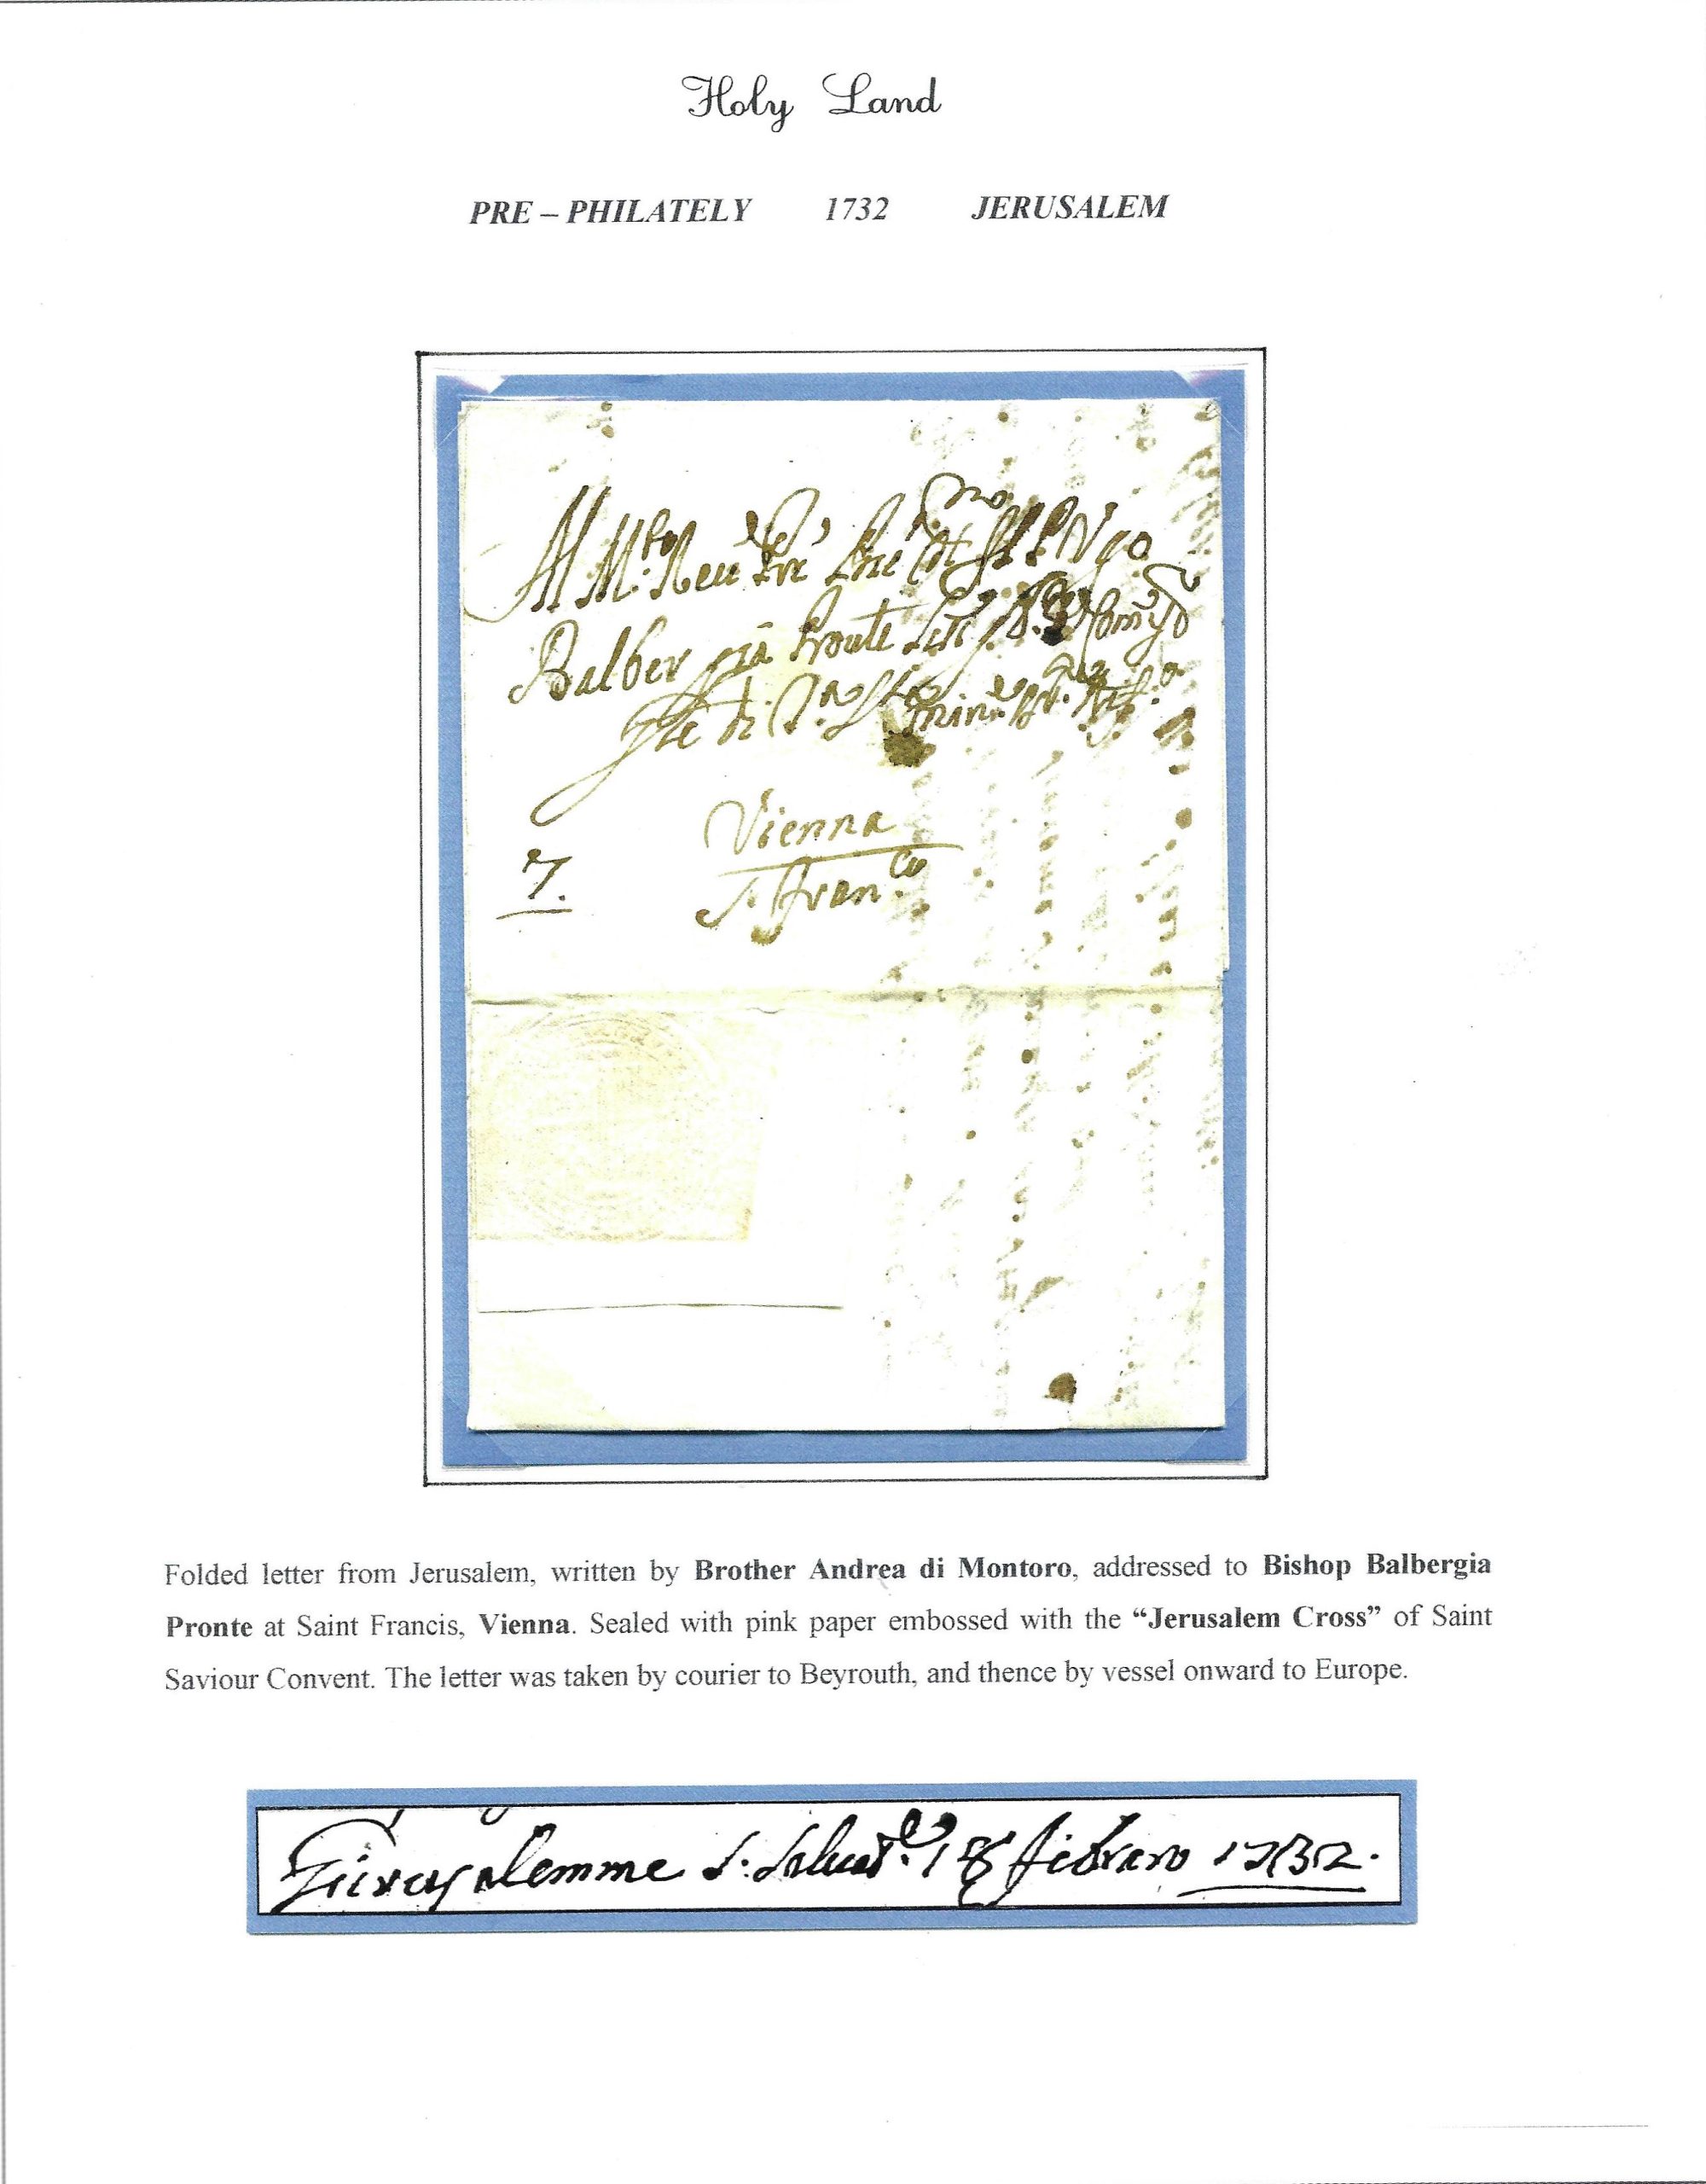 Holy Land
PRE – PHILATELY 1732 JERUSALEM
Al M.to Reu
Balber
di
Vienna
S. Fran.co
7.
Folded letter from Jerusalem, written by Brother Andrea di Montoro, addressed to Bishop Balbergia
Pronte at Saint Francis, Vienna. Sealed with pink paper embossed with the “Jerusalem Cross” of Saint
Saviour Convent. The letter was taken by courier to Beyrouth, and thence by vessel onward to Europe.
Gierusalemme S. Saluat.e 18 febraro 1732.